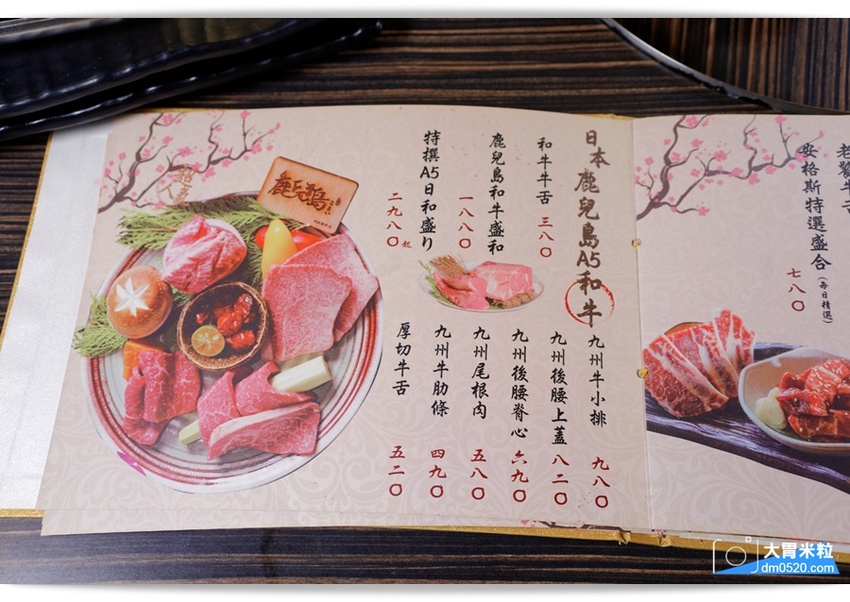 日本鹿兒島A5和牛
和牛牛舌 三八〇
鹿兒島和牛盛和 一八八〇
特撰A5日和盛り 二九八〇起
九州牛小排 九八〇
九州後腰上蓋 八二〇
九州後腰脊心 六九〇
九州尾根肉 五八〇
九州牛肋條 四九〇
厚切牛舌 五二〇
鹿兒島
老饕牛舌
安格斯特選盛合(每日精選) 七八〇
大胃米粒
dm0520.com